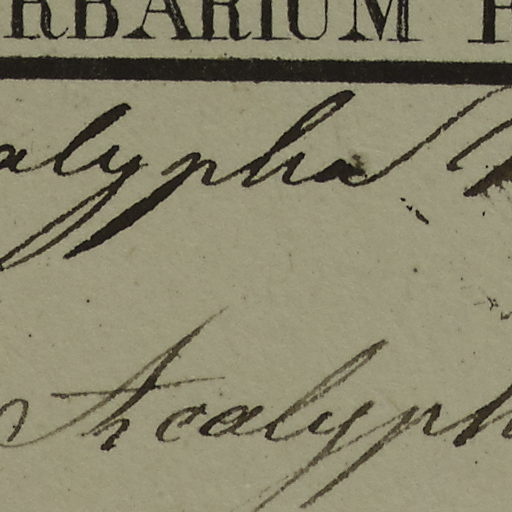 RBARIUM
alypha
Acalyph